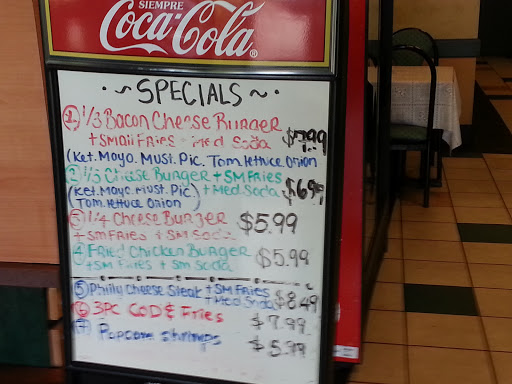 SIEMPRE
Coca-Cola®
SPECIALS
1 1/3 Bacon Cheese Burger
+ Small Fries + Med Soda $7.99
(Ket. Mayo. Must. Pic. Tom. lettuce Onion
2 1/3 Cheese Burger + SM Fries
(Ket. Mayo. Must. Pic.) + Med Soda $6.99
Tom. lettuce Onion)
3 1/4 Cheese Burger
+ sm Fries + SM Soda $5.99
4 Fried Chicken Burger
+ SM Fries + Sm Soda $5.99
5 Philly Cheese Steak + SM Fries
+ Med Soda $8.49
6 3PC COD & Fries $7.99
7 Popcorn shrimps $5.99